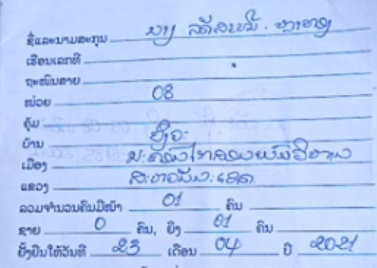 ຊື່ແລະນາມສະກຸນ ນາງ
ເຮືອນເລກທີ
ຖະໜົນສາຍ
ໜ່ວຍ 08
ຄຸ້ມ
ບ້ານ
ເມືອງ ນ.ໄກສອນພົມວິຫານ
ແຂວງ ສະຫວັນນະເຂດ
ລວມຈຳນວນຄົນມີໜ້າ 01 ຄົນ
ຊາຍ 0 ຄົນ, ຍິງ 01 ຄົນ
ຢັ້ງຢືນໃຫ້ວັນທີ 23 ເດືອນ 04 ປີ 2021